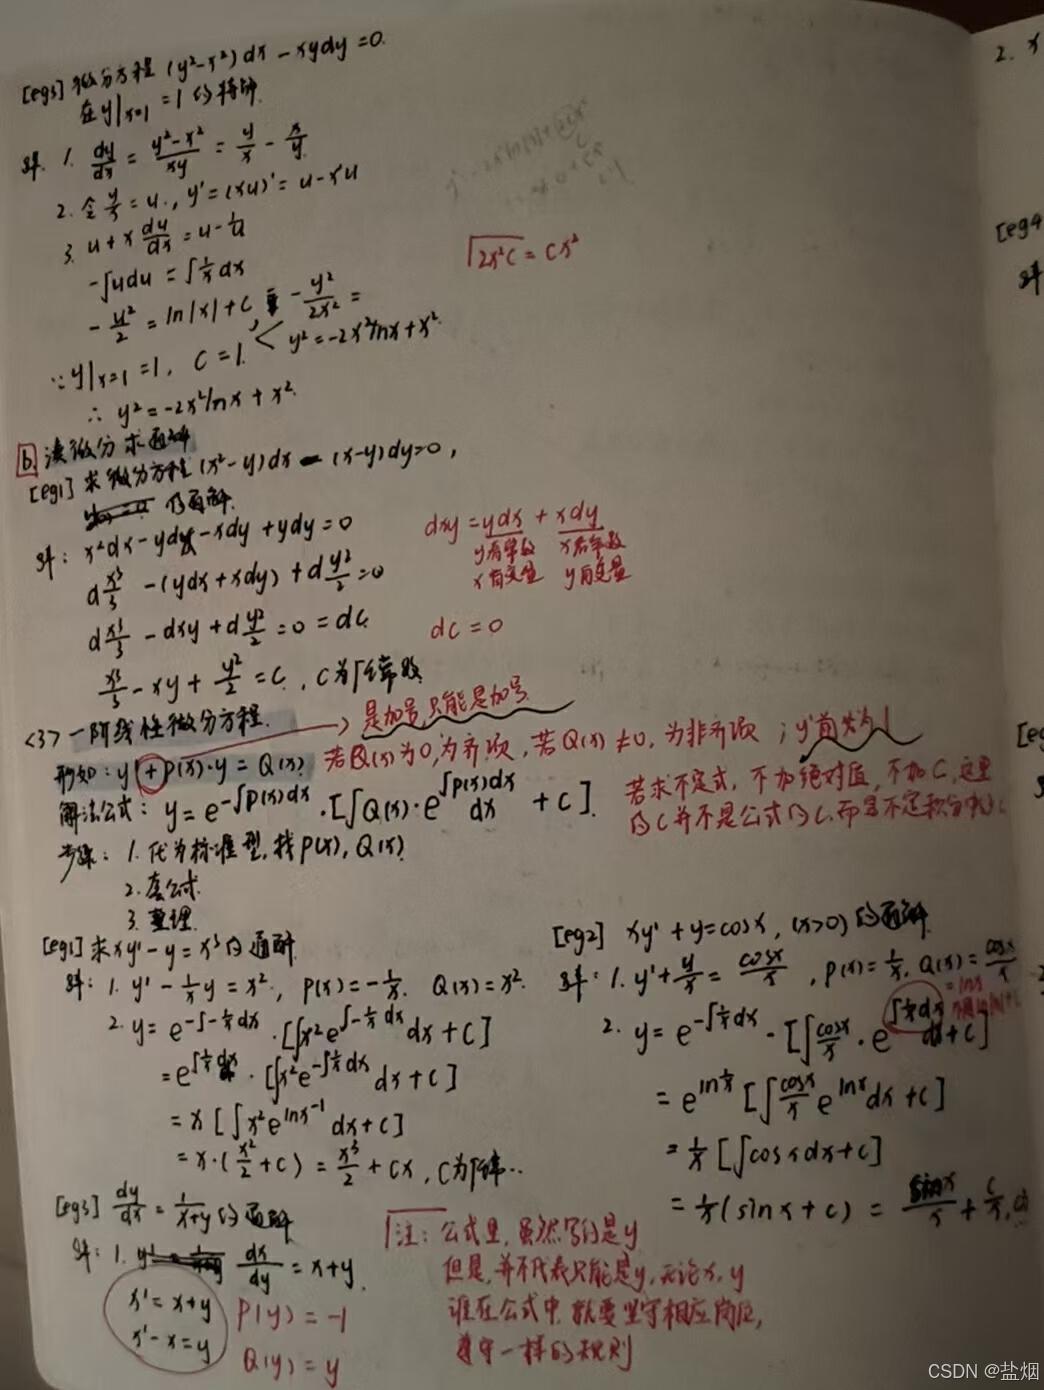 [eg3] 微分方程 (y²-x²)dx - xydy = 0.
在 y|x=1 = 1 的特解.
解. 1. dy/dx = (y²-x²)/xy = y/x - x/y
2. 令 y/x = u., y' = (xu)' = u-x'u
3. u + x du/dx = u - 1/u
-∫udu = ∫1/x dx
√2x²C = Cx²
- u²/2 = ln|x| + C, - y²/2x² =
∵ y|x=1 = 1, C = 1. < y² = -2x²lnx + x².
∴ y² = -2x²lnx + x².
b. 凑微分求通解
[eg1] 求微分方程 (x²-y)dx - (x-y)dy = 0,
的通解.
解: x²dx - ydx - xdy + ydy = 0
d x³/3 - (ydx + xdy) + d y²/2 = 0
d x³/3 - dxy + d y²/2 = 0 = dC
x³/3 - xy + y²/2 = C, C为任常数
dxy = ydx + xdy
y看常数 x看常数
x看变量 y看变量
dC = 0
<3> 一阶线性微分方程. → 是加号,只能是加号.
形如: y' + P(x)·y = Q(x) 若Q(x)为0,为齐项, 若Q(x)≠0, 为非齐项 ; y'前为1
解法公式: y = e^(-∫P(x)dx) · [∫Q(x)·e^(∫P(x)dx) dx + C].
若求不定式, 不加绝对值, 不加C, 这里
的C并不是公式的C,而是不定积分的C
步骤: 1. 化为标准型, 找P(x), Q(x)
2. 套公式.
3. 整理.
[eg1] 求 xy' - y = x³ 的通解
解: 1. y' - 1/x y = x², P(x) = -1/x. Q(x) = x².
2. y = e^(-∫-1/x dx) · [∫x²e^(∫-1/x dx) dx + C]
= e^(∫1/x dx) · [∫x²e^(-∫1/x dx) dx + C]
= x [∫x²e^(lnx⁻¹) dx + C]
= x·(x²/2 + C) = x³/2 + Cx, C为任常..
[eg2] xy' + y = cosx, (x>0) 的通解
解: 1. y' + y/x = cosx/x, P(x) = 1/x. Q(x) = cosx/x
= lnx
2. y = e^(-∫1/x dx) · [∫cosx/x · e^(∫1/x dx) dx + C]
= e^(ln1/x) [∫cosx/x e^(lnx) dx + C]
= 1/x [∫cosxdx + C]
= 1/x (sinx + C) = sinx/x + C/x,
[eg3] dy/dx = 1/(x+y) 的通解
解: 1. dx/dy = x+y.
x' = x+y
x' - x = y
P(y) = -1
Q(y) = y
注: 公式里, 虽然写的是y
但是,并不代表只能是y, 无论x, y
谁在公式中, 就要坚守相应岗位,
遵守一样的规则
2. x
[eg4
解
[eg
CSDN @盐烟